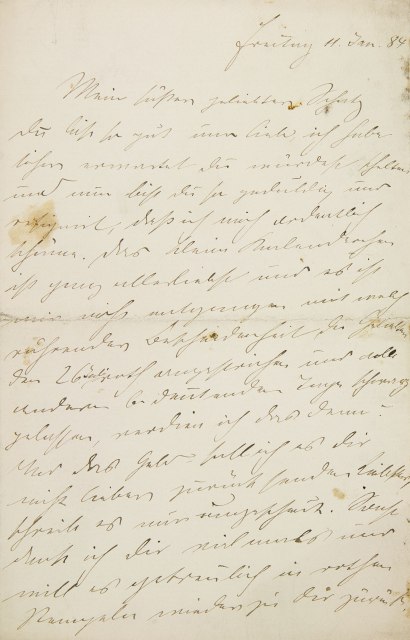 Freitag 11. Jan. 84
Mein süßer geliebter Schatz
Du bist so gut und lieb, ich habe
sicher erwartet Du würdest schelten
und nun bist Du so geduldig und
resignirt, daß ich mich ordentlich
schäme. Das kleine
ist ganz allerliebst und es ist
mir nicht entgangen mit welch
rührender Bescheidenheit Du
den 26 roth angestrichen und alle
anderen bedeutenden Tage schwarz
gelassen, verdien ich das denn?
Und das Geld soll ich es Dir
nicht lieber zurück senden
schreib es mir umgehend. Sonst
dank ich Dir vielmals und
will es getreulich in rothen
wieder zu Dir zurück